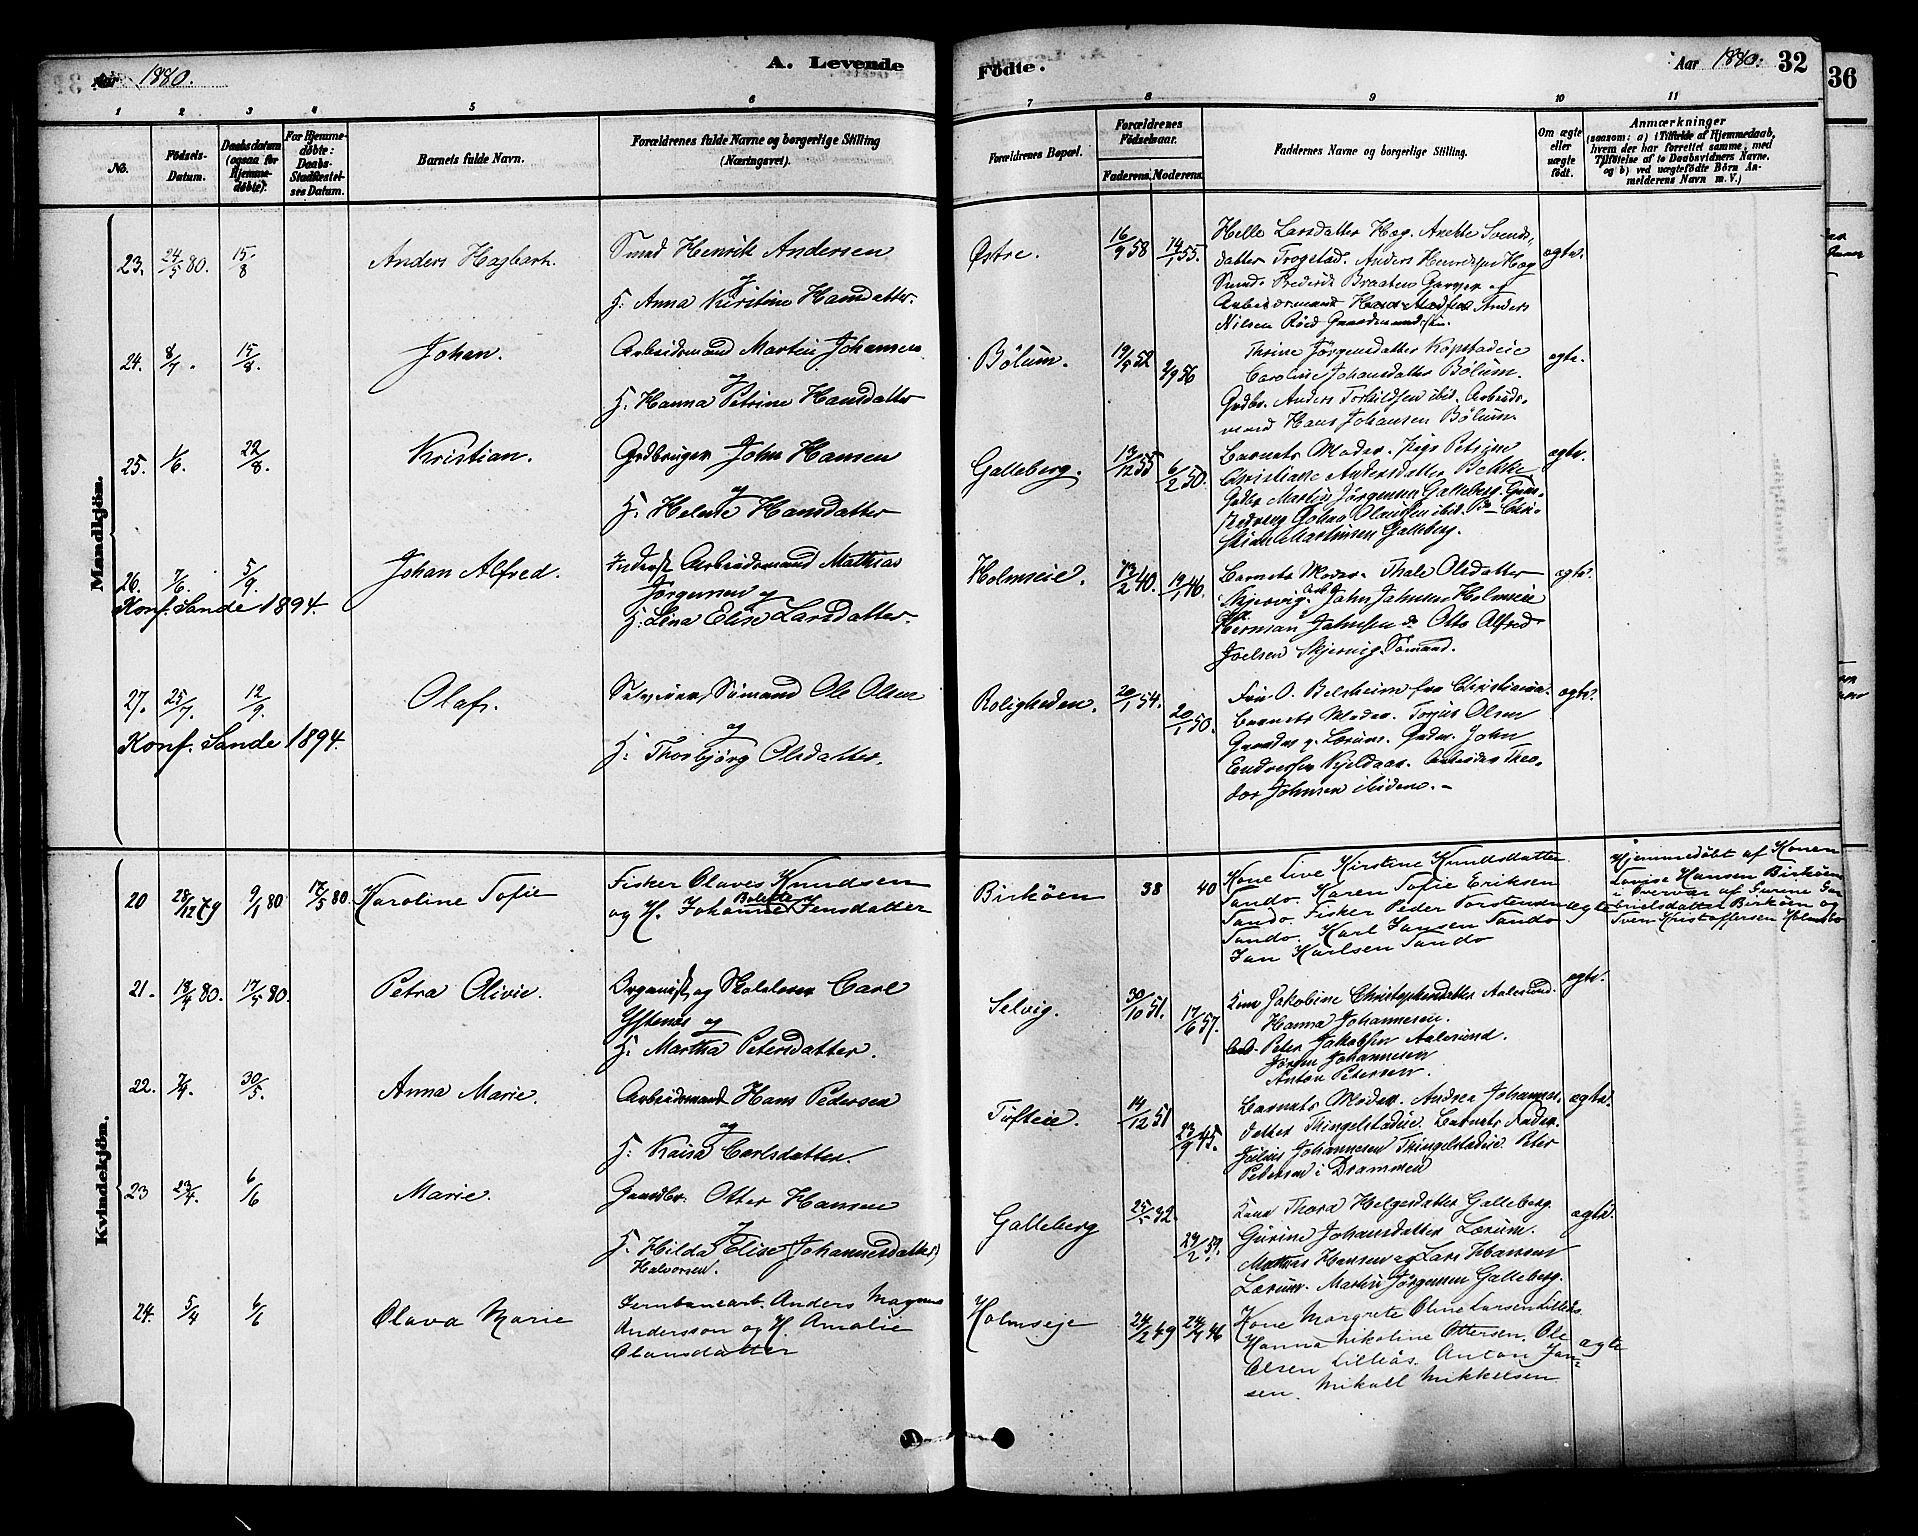 Aar 1880.
A. Levende
Fødte.
Aar 1880.
32
36
1 2 3 4 5 6 7 8 9 10 11
No.
Fødsels-
Datum.
Daabsdatum
(ogsaa for
Hjemme-
døbte).
For Hjemme-
døbte:
Daabs-
Stadfæstel-
ses Datum.
Barnets fulde Navn.
Forældrenes fulde Navne og borgerlige Stilling
(Næringsvei).
Forældrenes Bopæl.
Forældrenes
Fødselsaar.
Faderens. Moderens.
Faddernes Navne og borgerlige Stilling.
Om ægte
eller
uægte
født.
Anmærkninger
(saasom: a) i Tilfælde af Hjemmedaab,
hvem der har forrettet samme, med
Tilføielse af to Daabsvidners Navne.
og b) ved uægtefødte Børn An-
melderens Navn m. V.)
Mandkjøn.
23. 24/5 80. 15/8
Anders Hagbarth.
Smed Henrik Andersen
og
H. Anna Kirstine Hansdatter.
Østre.
16/9 58 14/1 55.
Helle Larsdatter Hag. Anette Svends-
datter Trogstad. Anders Hag
Smed. Frederik Braaten Garver og
Arbeidsmand Anders
Nilsen Röed
ægte.
24. 8/7 15/8
Johan.
Arbeidsmand Martin Johansen
og
H. Hanna Petrine Hansdatter
Bølum.
19/5 52 2/9 56
Thrine Jørgensdatter Kopstadeie
Caroline Johansdatter Bølum.
Grdbr. Anders Torkildsen ibid. Arbeids-
mand Hans Johansen Bølum.
ægte.
25. 1/6. 22/8.
Kristian.
Grdbruger John Hansen
og
H. Helene Hansdatter
Galleberg.
13/12 55 6/2 50.
Barnets Moder. Pige Petrine
Christiane Andersdatter Bekke
Grdbr Martin Jørgensen Galleberg.
Johan Olaussen ibid. Do Chri-
stian Martinsen Galleberg.
ægte.
26. 7/6. 5/9.
Johan Alfred.
Inderst Arbeidsmand Mathias
Jörgensen og
H. Lina Elise Larsdatter.
Holmseie.
13/2 40. 19/1 46.
Barnets Moder. Thale Olsdatter
Skjervig. Arb. John Johnsen Holmseie
Herman Johnsen do Otto Alfred
Joelsen Skjervig Sømand.
ægte.
Konf. Sande 1894.
27. 25/7. 12/9.
Olaf.
Selveier, Sømand Ole Olsen
og
H. Thorbjørg Olsdatter.
Roligheden.
20/1 54. 20/1 50.
Frk. O. Belsheim fra Christiania.
Barnets Moder. Torjus Olsen
Lærum. Grdm. John
Endresen Kjeldaas. Arbeider Theo-
dor Johnsen ibidem.
ægte.
Konf. Sande 1894.
Kvindekjön.
20 28/12 79 9/1 80 17/5 80.
Karoline Sofie
Fisker Olaves Knudsen
og H. Johanne Bolette Jensdatter
Birköen
38 40
Kone Live Kirstine Knudsdatter
Sando. Karen Sofie Eriksen
Sando. Fisker Peder Torstensen
Sando. Karl Jansen Sando
Jan Karlsen Sando
ægte
Hjemmedöbt af Konen
Lovise Hansen Birköen
i Overvær af Gurene Ga-
brielsdatter Birköen og
Sven Kristoffersen Holmsbo
21. 18/4 80. 17/5 80.
Petra Olivie.
Organist og Skolelærer Carl
Ystenes og
H. Martha Petersdatter.
Selvig.
30/10 51. 17/6 57.
Kone Jakobine Christophersdatter Aalesund.
Hanna Johannesen.
Peter Jakobsen Aalesund.
Jørgen Johannesen
Anton Petersen.
ægte.
22. 7/4. 30/5.
Anna Marie.
Arbeidsmand Hans Pedersen
og
H. Kaisa Carlsdatter.
Tufteie.
14/12 51 23/9 45.
Barnets Moder. Andrea Johannes-
datter Thingelstadeie. Barnets Fader.
Julius Johannesen Thingelstadeie. Peter
Petersen i Drammen
ægte.
23 23/4. 6/6
Marie.
Gaardbr. Otter Hansen
og
H. Hilda Elise (Johannesdatter)
Halvorsen.
Galleberg
25/5 32. 29/2 59.
Kone Thora Helgesdatter Galleberg.
Gurine Johansdatter Lærum.
Mathias Hansen og Lars Hansen
Lærum. Martin Jørgensen Galleberg.
ægte.
24. 5/4 6/6
Olava Marie
Jernbanearb. Anders Magnus
Andersson og H. Amalie
Olausdatter
Holmseje
24/2 49 24/4 46
Kone Margrete Oline Larsen Lilleås
Hanna Nikoline Ottersen. Ole
Olsen Lilleås. Anton Jan-
sen. Mikall Mikkelsen
ægte